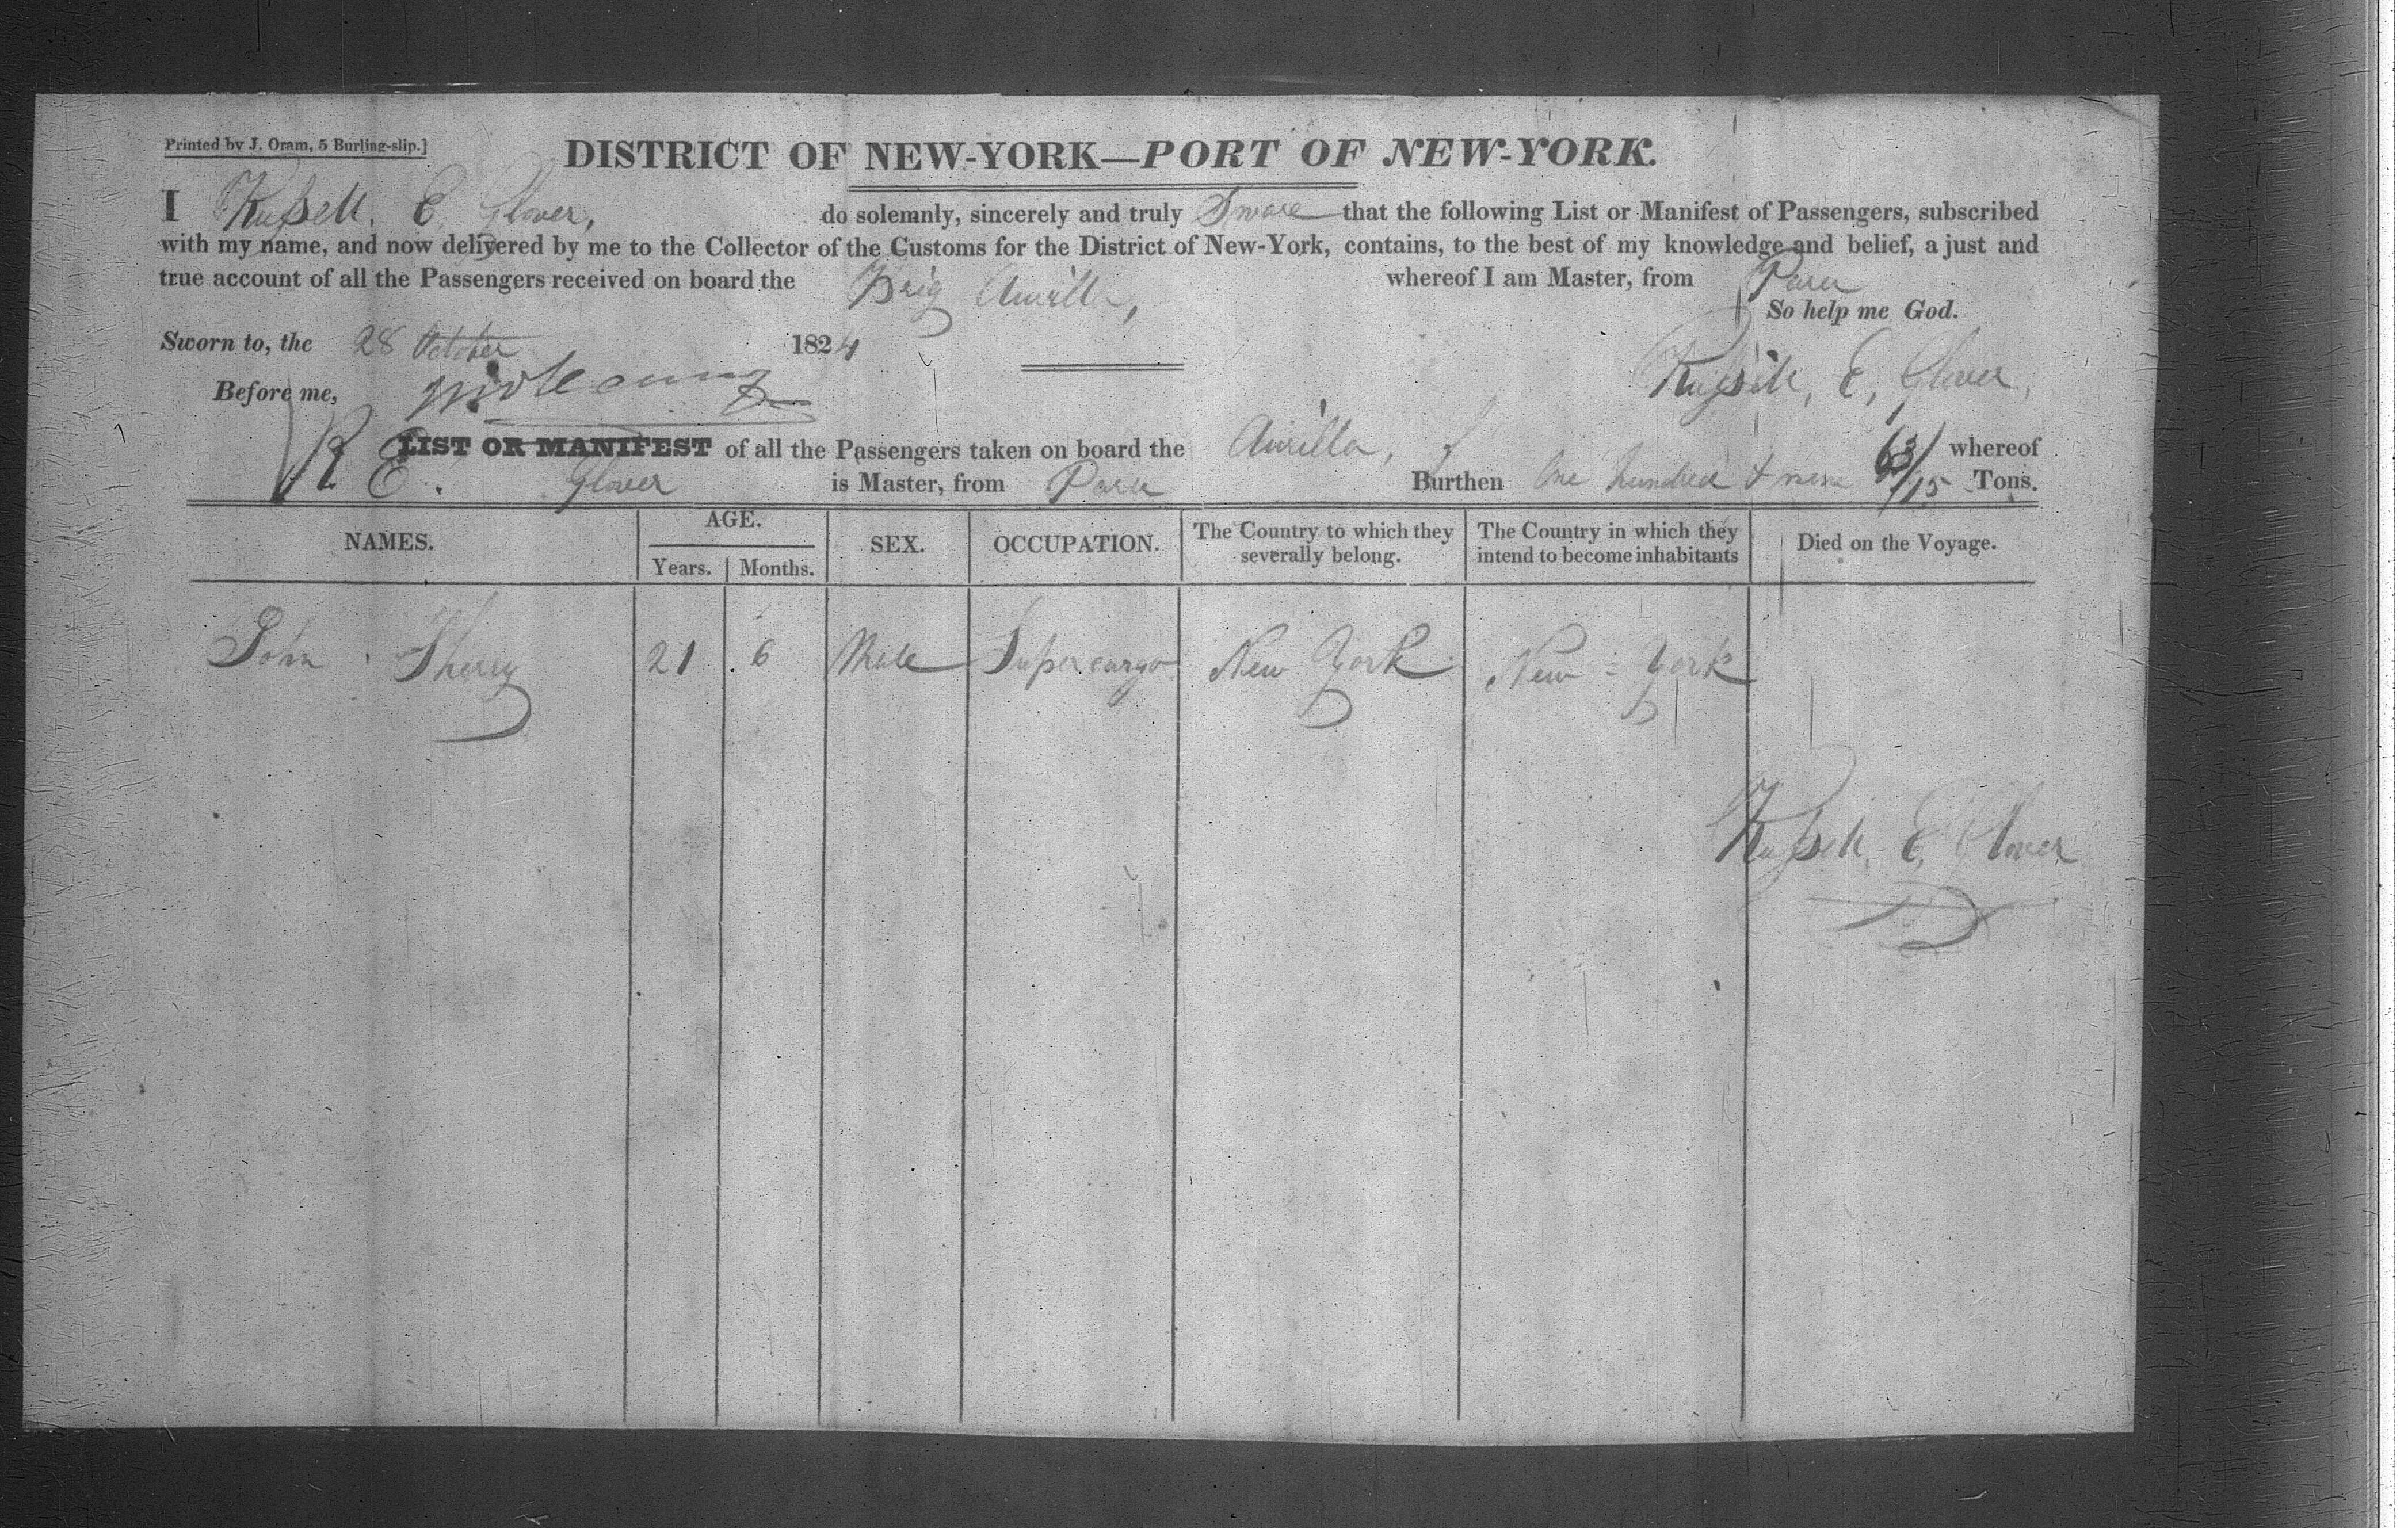 Printed by J. Oram, 5 Burling-slip.]
DISTRICT OF NEW-YORK—PORT OF NEW-YORK.
I Russell. E. Glover, do solemnly, sincerely and truly Sware that the following List or Manifest of Passengers, subscribed
with my name, and now delivered by me to the Collector of the Customs for the District of New-York, contains, to the best of my knowledge and belief, a just and
true account of all the Passengers received on board the Brig Aurilla, whereof I am Master, from Para
So help me God.
Sworn to, the 28 October 1824
Russell, E, Glover,
Before me,
LIST OR MANIFEST of all the Passengers taken on board the Aurilla, whereof
R E. Glover is Master, from Para Burthen One hundred & nine 63/95 Tons.
NAMES. AGE. SEX. OCCUPATION. The Country to which they severally belong. The Country in which they intend to become inhabitants Died on the Voyage.
Years. Months.
John Sherry 21 6 Male Supercargo New York New-York
Russell, E, Glover